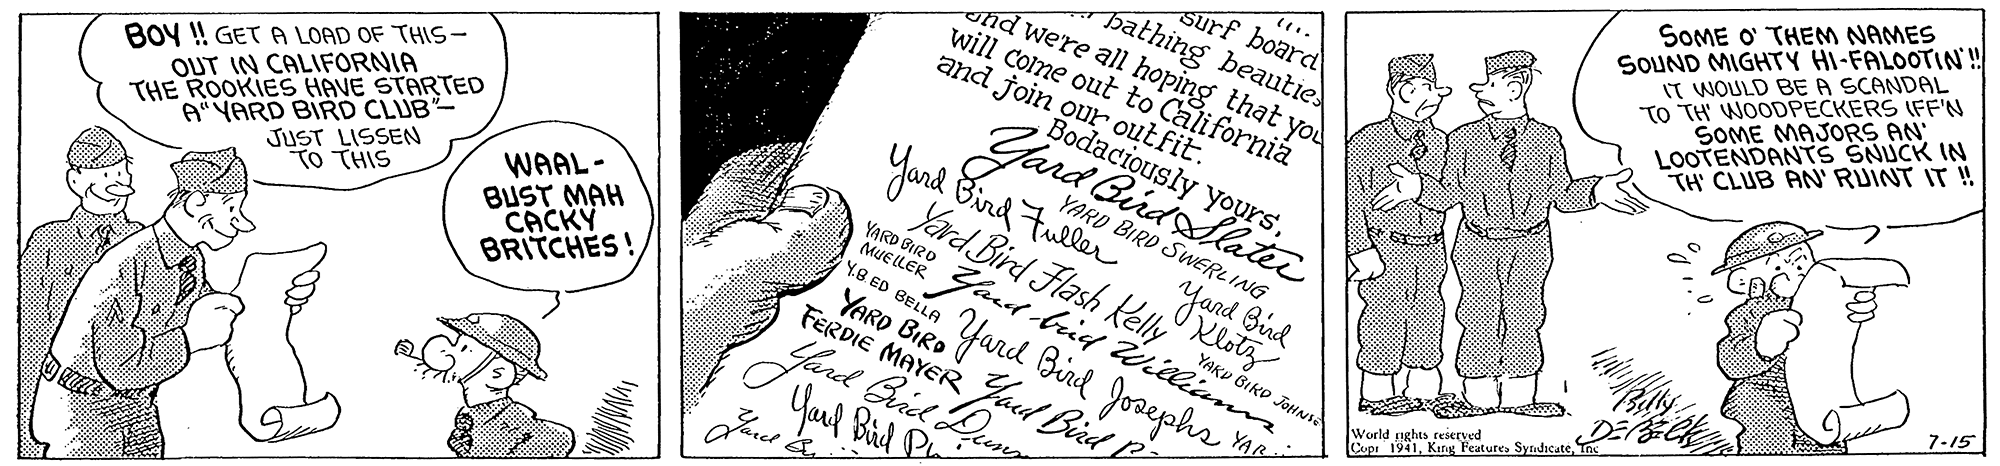 BOY !! GET A LOAD OF THIS—
OUT IN CALIFORNIA
THE ROOKIES HAVE STARTED
A "YARD BIRD CLUB"—
JUST LISSEN
TO THIS
WAAL-
BUST MAH
CACKY
BRITCHES!
surf board
bathing beauties
and we're all hoping that you
will come out to California
and join our outfit.
Bodaciously yours,
Yard Bird Slater
Yard Bird Fuller
YARD BIRD SWERLING
Yard Bird Flash Kelly
Yard Bird
Klotz
YARD BIRD
MUELLER
Yard-bird Williams
YARD BIRD JOHNS
Y.B. ED BELLA
Yard Bird Josephs
YARD BIRD
FERDIE MAYER
Yard Bird
Yard Bird Dunn
Yard Bird
Yard
SOME O' THEM NAMES
SOUND MIGHTY HI-FALOOTIN'!!
IT WOULD BE A SCANDAL
TO TH' WOODPECKERS IFF'N
SOME MAJORS AN'
LOOTENDANTS SNUCK IN
TH' CLUB AN' RUINT IT !!
World rights reserved
Copr 1941, King Features Syndicate, Inc
Billy
DeBeck
7-15